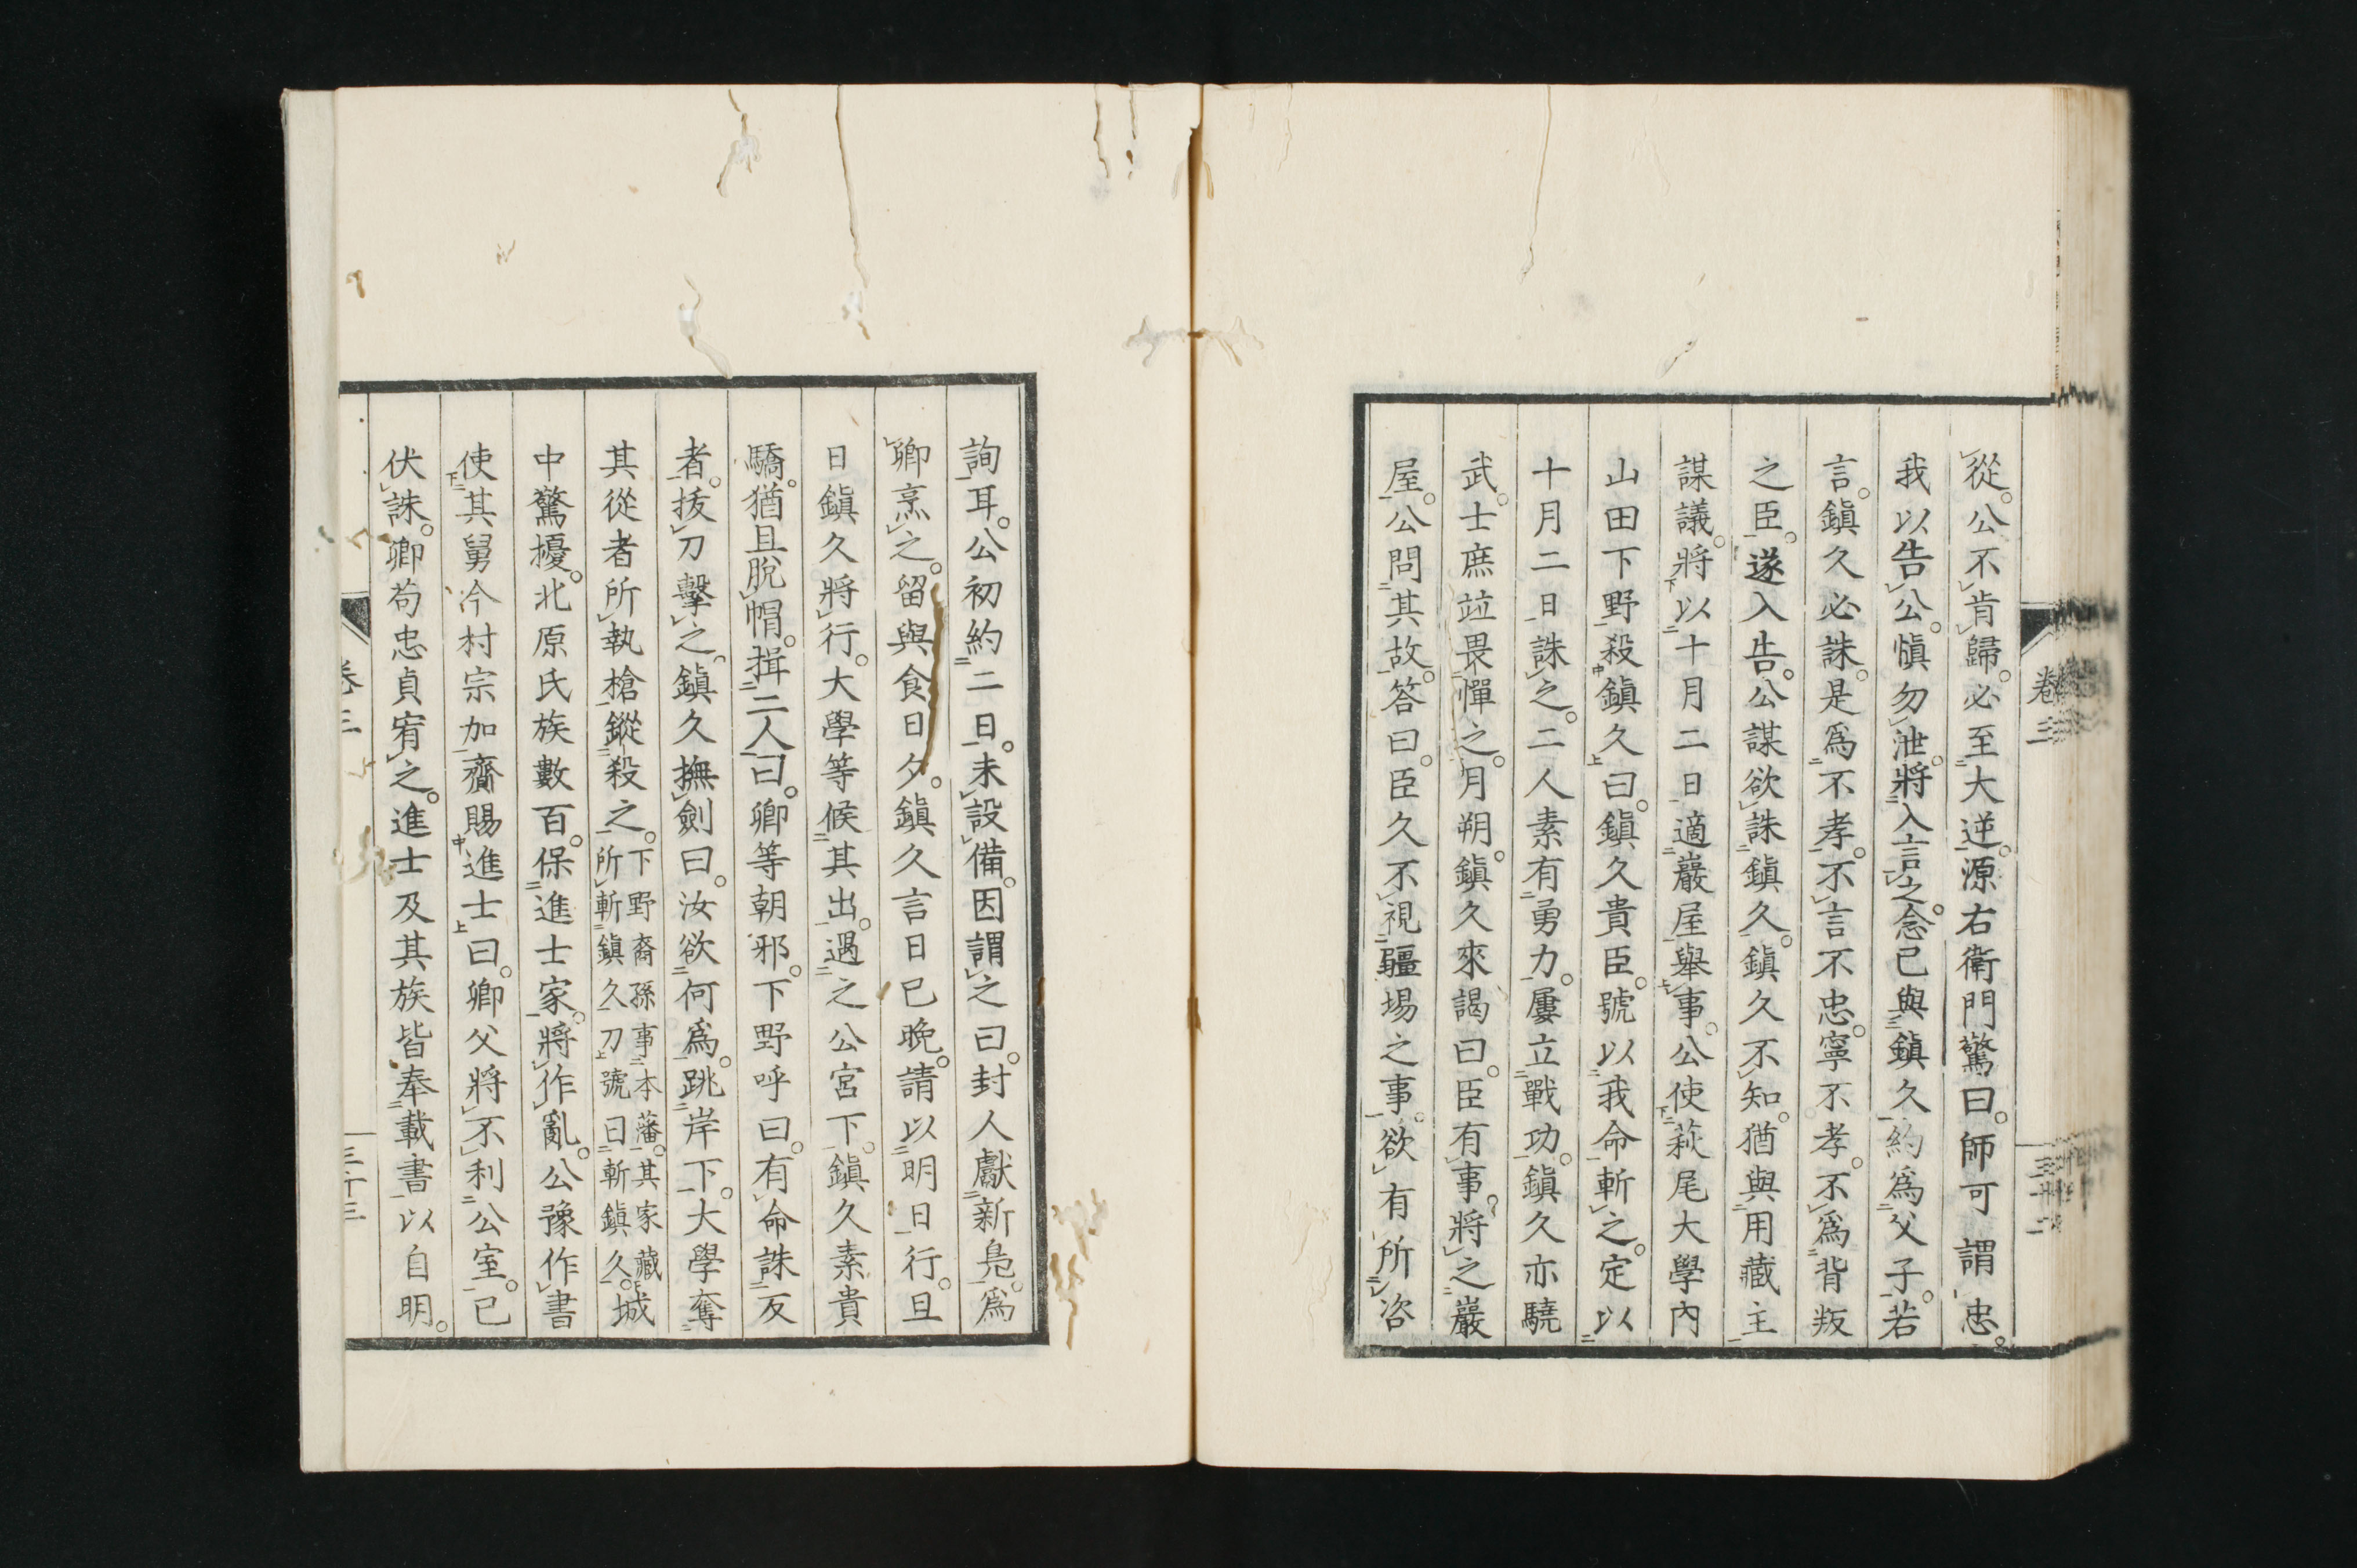 從。公不肯歸。必至大逆。源右衛門驚曰。師可謂忠。
我以告公。愼勿泄。將入言之。念已與鎭久約爲父子。若
言。鎭久必誅。是爲不孝。不言不忠。寧不孝。不爲背叛
之臣。遂入告。公謀欲誅鎭久。鎭久不知。猶與用藏主
謀議。將以十月二日適巖屋舉事。公使萩尾大學內
山田下野殺鎭久曰。鎭久貴臣。號以我命斬之。定以
十月二日誅之。二人素有勇力。屢立戰功。鎭久亦驍
武。士庶竝畏憚之。月朔。鎭久來謁曰。臣有事。將之巖
屋。公問其故。答曰。臣久不視疆埸之事。欲有所咨
卷三
三十二
詢耳。公初約二日。未設備。因謂之曰。封人獻新鳧。爲
卿烹之。留與食日夕。鎭久言日已晚。請以明日行。旦
日鎭久將行。大學等候其出。遇之公宮下。鎭久素貴
驕。猶且脫帽。揖二人曰。卿等朝邪。下野呼曰。有命誅反
者。拔刀擊之。鎭久撫劍曰。汝欲何爲。跳岸下。大學奪
其從者所執槍鏦殺之。下野裔孫事本藩。其家藏所斬鎭久刀號曰斬鎭久。城
中驚擾。北原氏族數百。保進士家。將作亂。公豫作書
使其舅今村宗加齎賜進士曰。卿父將不利公室。已
伏誅。卿苟忠貞宥之。進士及其族皆奉載書以自明。
卷三
三十三